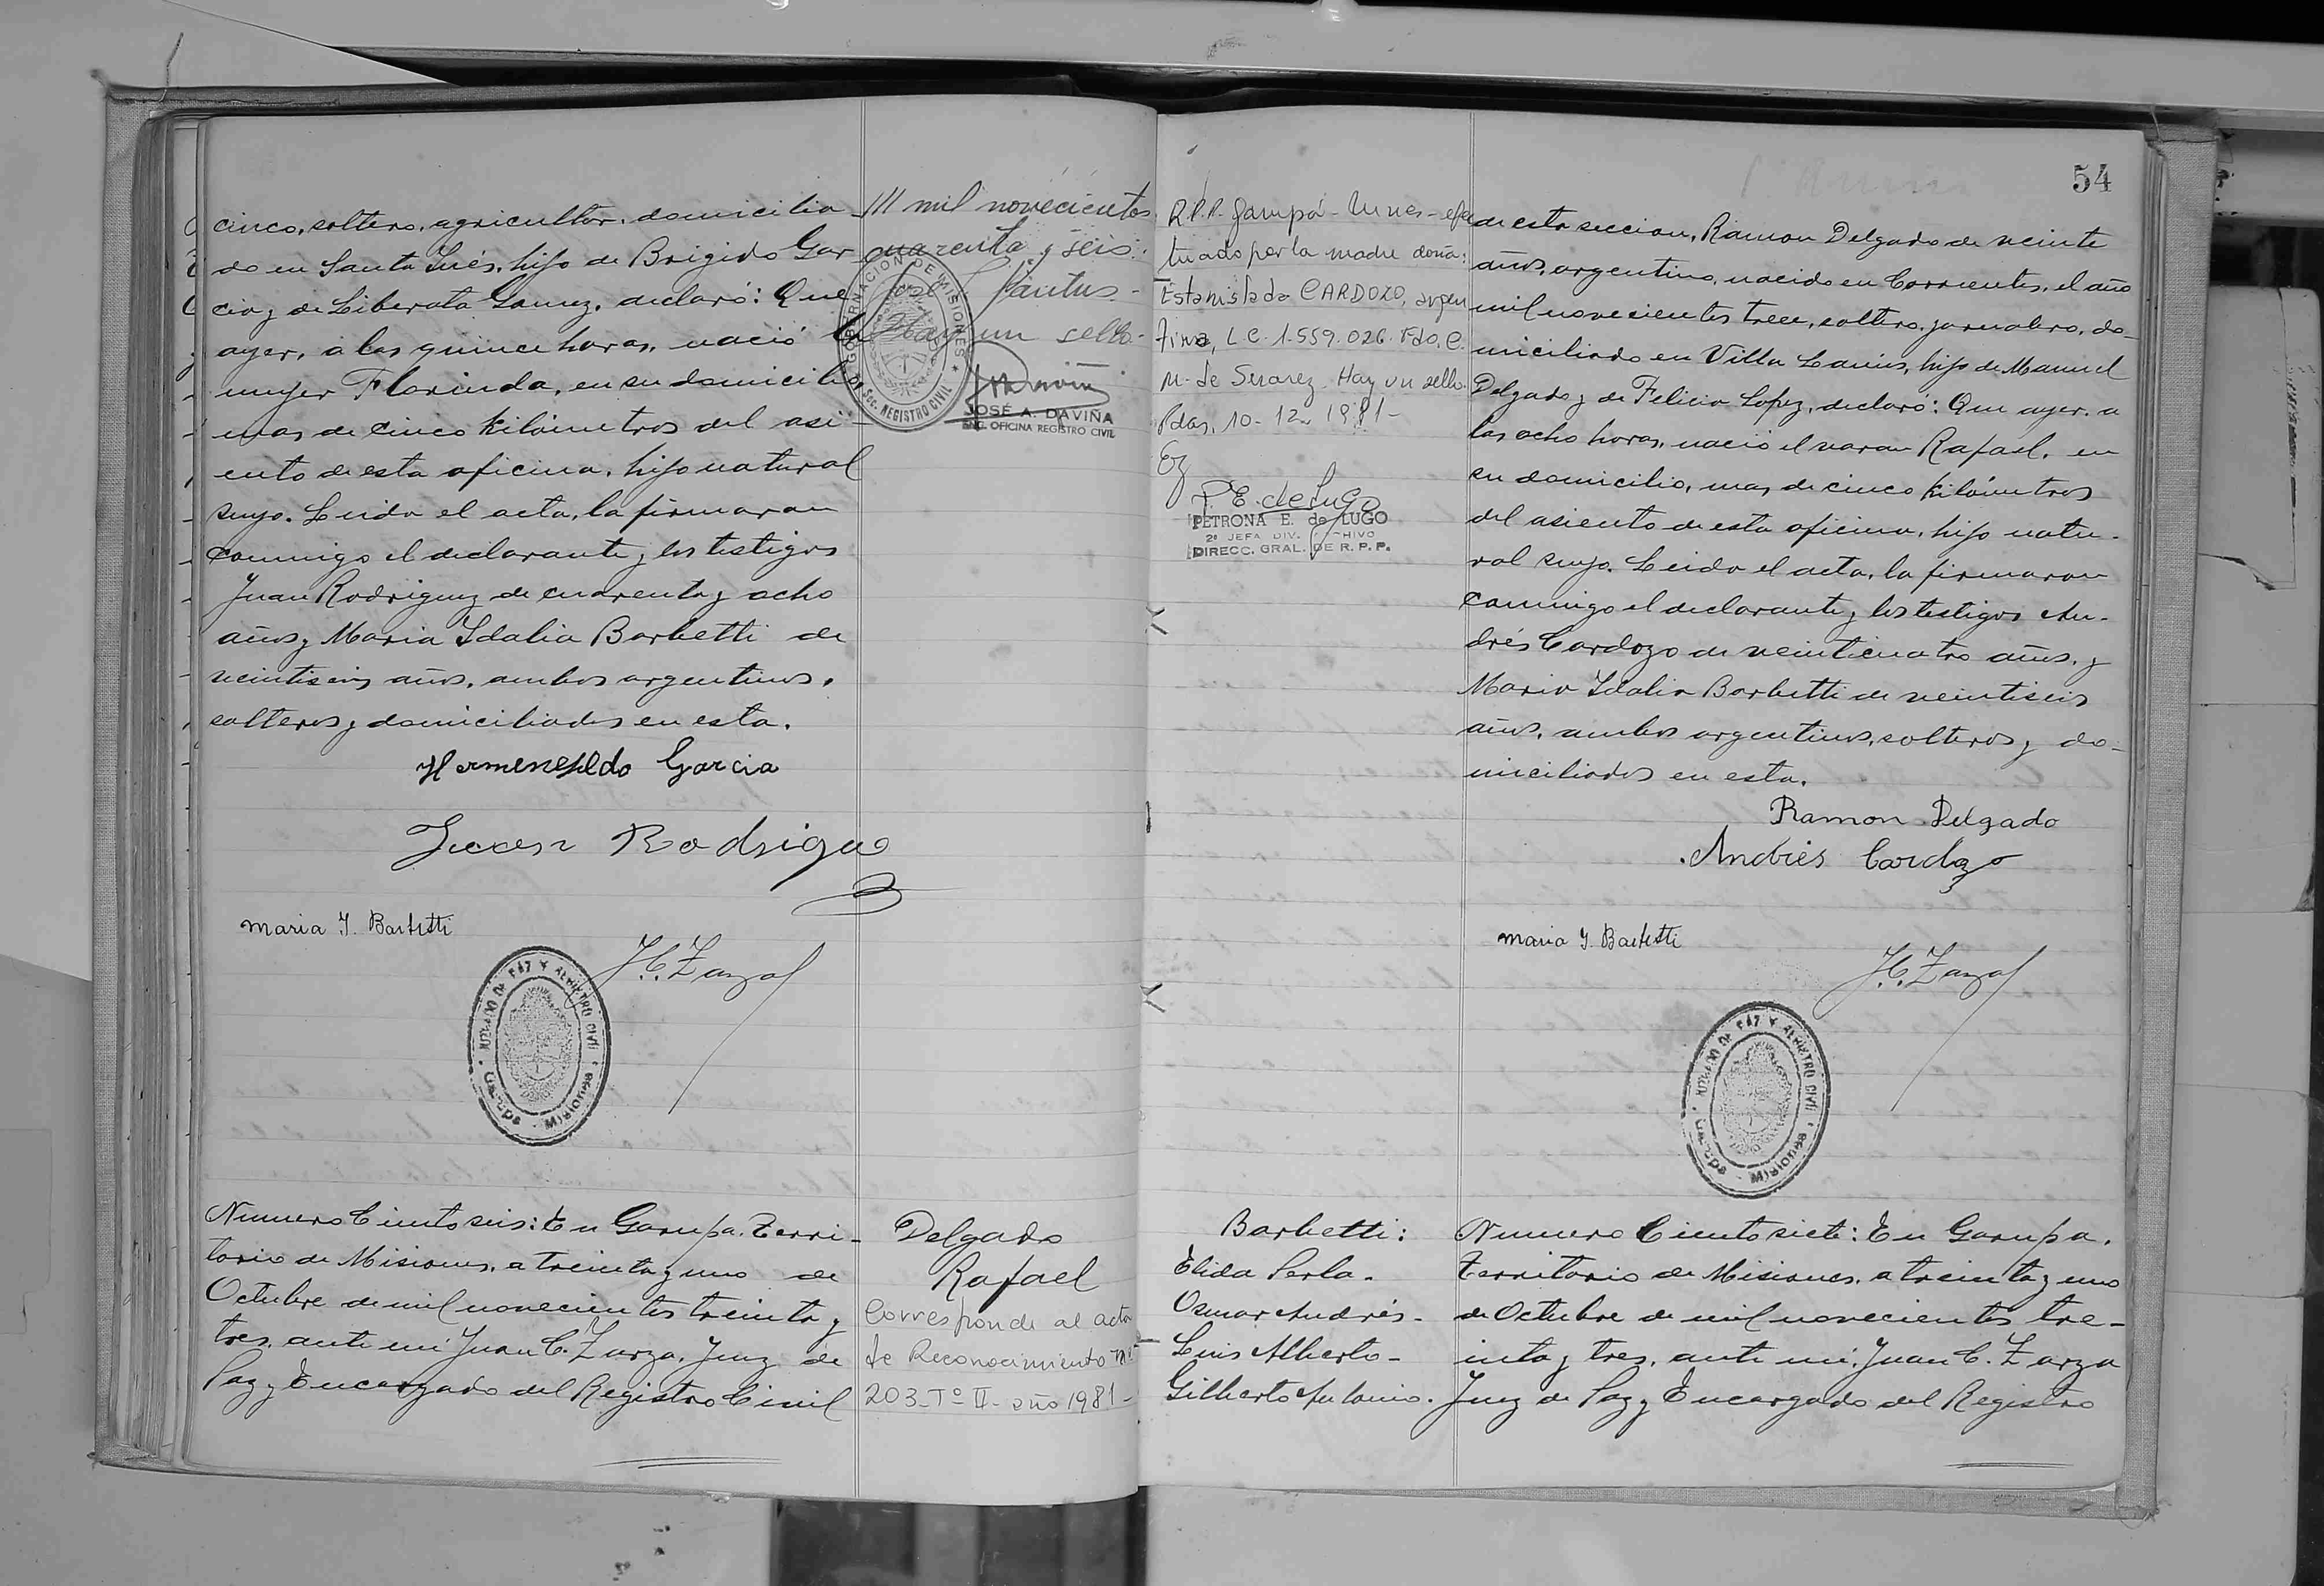 cinco, soltero, agricultor, domicilia-
do en Santa Inés, hijo de Brigido Gar-
cia y de Liberata Gomez, declaró: Que
ayer, a las quince horas, nació la
mujer Florinda, en su domicilio
mas de cinco kilómetros del asi-
ento de esta oficina, hijo natural
suyo. Leida el acta, la firmaron
conmigo el declarante y los testigos
Juan Rodriguez de cuarenta y ocho
años y Maria Idalia Barbetti de
veintiseis años, ambos argentinos,
solteros y domiciliados en esta.
Hermenegildo Garcia
Juan Rodrigue
Maria I. Barbetti
J.C. Zarza
JUZGADO DE PAZ Y REGISTRO CIVIL
Garupa - Misiones
mil novecientos
cuarenta y seis:
José Santus -
Hay un sello.-
GOBERNACION DE MISIONES
SCC. REGISTRO CIVIL
JOSÉ A. DAVIÑA
ENC. OFICINA REGISTRO CIVIL
Numero Ciento seis: En Garupa, Terri-
torio de Misiones, a treinta y uno de
Octubre de mil novecientos treinta y
tres, ante mi Juan C. Zarza, Juez de
Paz y Encargado del Registro Civil
Delgado
Rafael
Corresponde al acta
de Reconocimiento Nº
203-Tº II- año 1981-
R.P.P. Garupá - Mnes - efec
tuado por la madre doña:
Estanislada CARDOZO, argen
tina, L.C. 1.559.026. Fdo. C.
M. de Suarez. Hay un sello.
Pdas, 10-12-1981-
P.E. de Lugo
PETRONA E. de LUGO
2ª JEFA DIV. ARCHIVO
DIRECC. GRAL. DE R. P. P.
54
de esta seccion, Ramon Delgado de veinte
años, argentino, nacido en Corrientes, el año
mil novecientos trece, soltero, jornalero, do-
miciliado en Villa Lanús, hijo de Manuel
Delgado y de Felicia Lopez, declaró: Que ayer, a
las ocho horas, nació el varon Rafael, en
su domicilio, mas de cinco kilómetros
del asiento de esta oficina, hijo natu-
ral suyo. Leida el acta, la firmaron
conmigo el declarante y los testigos An-
drés Cardozo de veinticuatro años, y
Maria Idalia Barbetti de veintiseis
años, ambos argentinos, solteros y do-
miciliados en esta.
Ramon Delgado
Andrés Cardozo
Maria I. Barbetti
J.C. Zarza
JUZGADO DE PAZ Y REGISTRO CIVIL
Garupa - Misiones
Barbetti:
Elida Perla-
Osmar Andrés-
Luis Alberto-
Gilberto Antonio.
Numero Ciento siete: En Garupa,
Territorio de Misiones, a treinta y uno
de Octubre de mil novecientos tre-
inta y tres, ante mi, Juan C. Zarza
Juez de Paz y Encargado del Registro